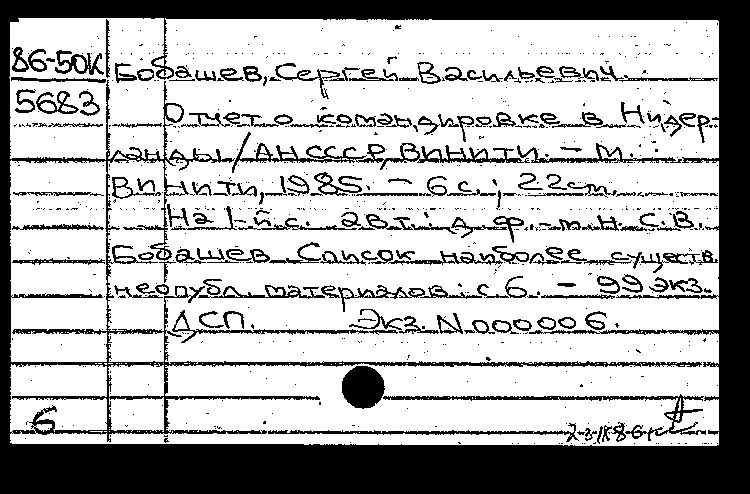 86-50К
5683
Бобашев, Сергей Васильевич.
Отчет о командировке в Нидер-
ланды / АН СССР, ВИНИТИ. - М. :
ВИНИТИ, 1985. - 6 с. ; 22 см.
На 1-й с. авт.: д. ф.-м. н. С. В.
Бобашев. Список наиболее существ.
неопубл. материалов: с. 6. - 99 экз.
ДСП. Экз. N 000006.
6